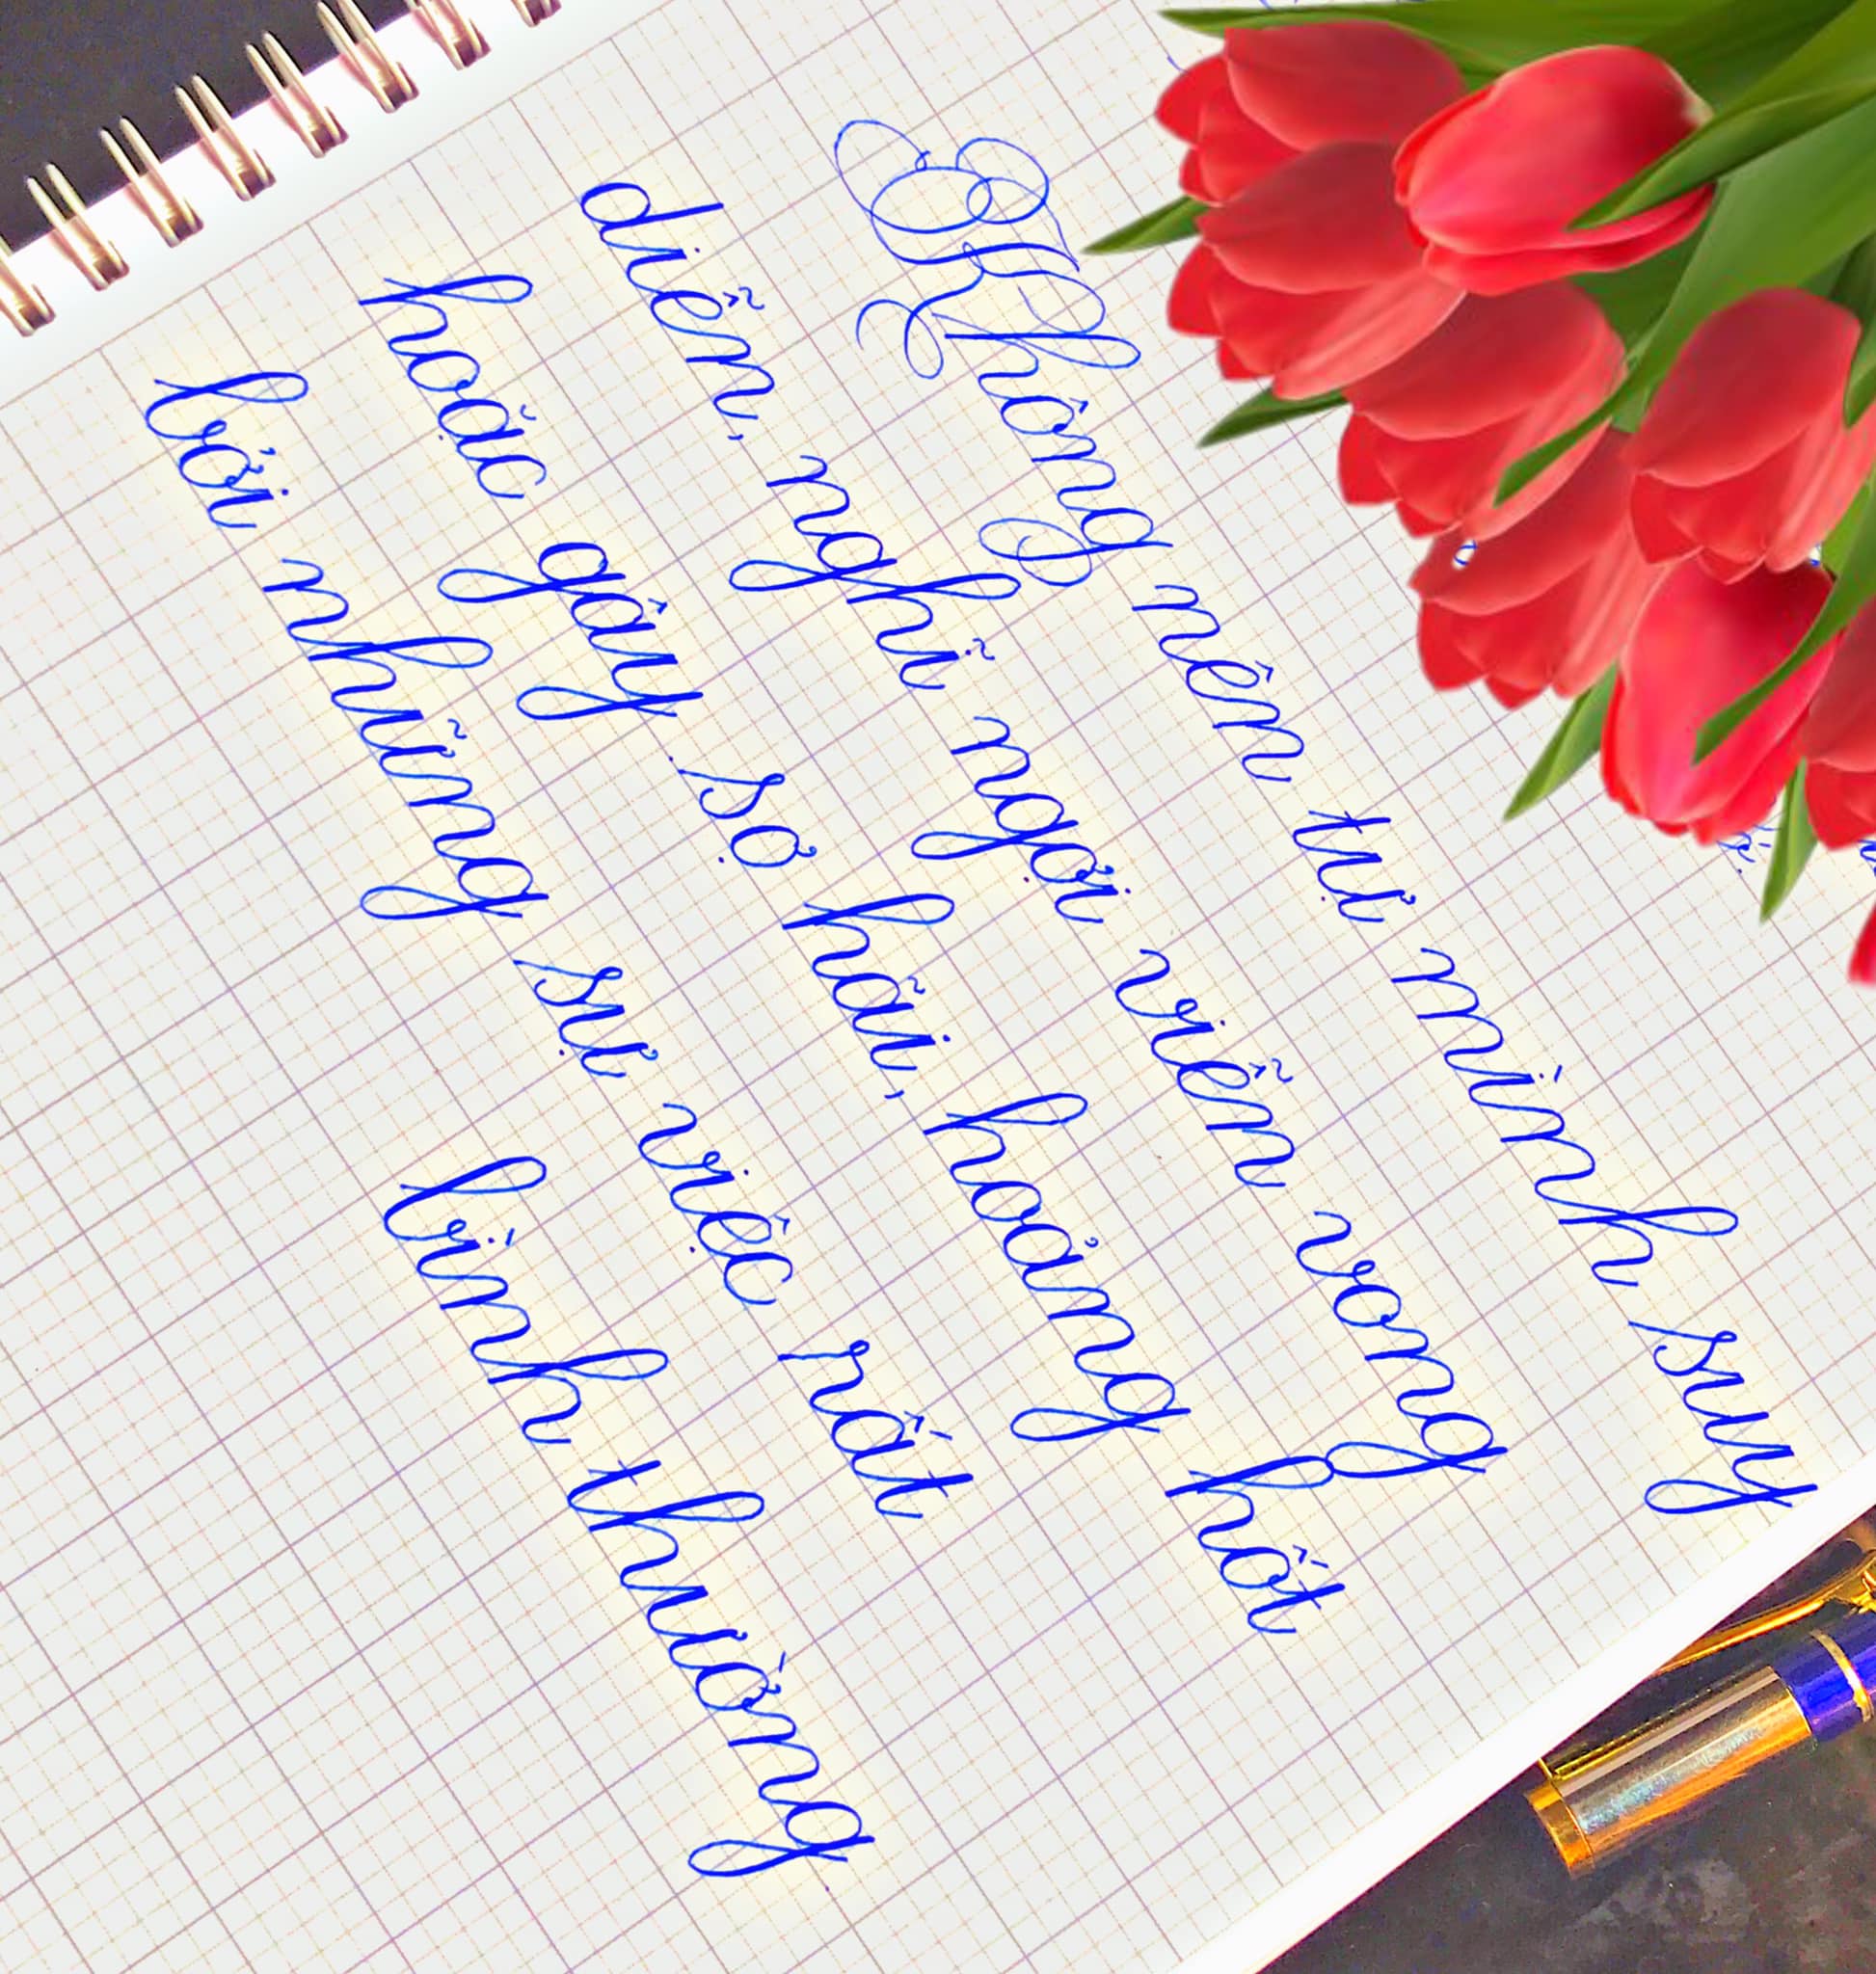 Không nên tự mình suy
diễn, nghĩ ngợi viển vong
hoặc gây sợ hãi, hoảng hốt
bởi những sự việc rất
bình thường